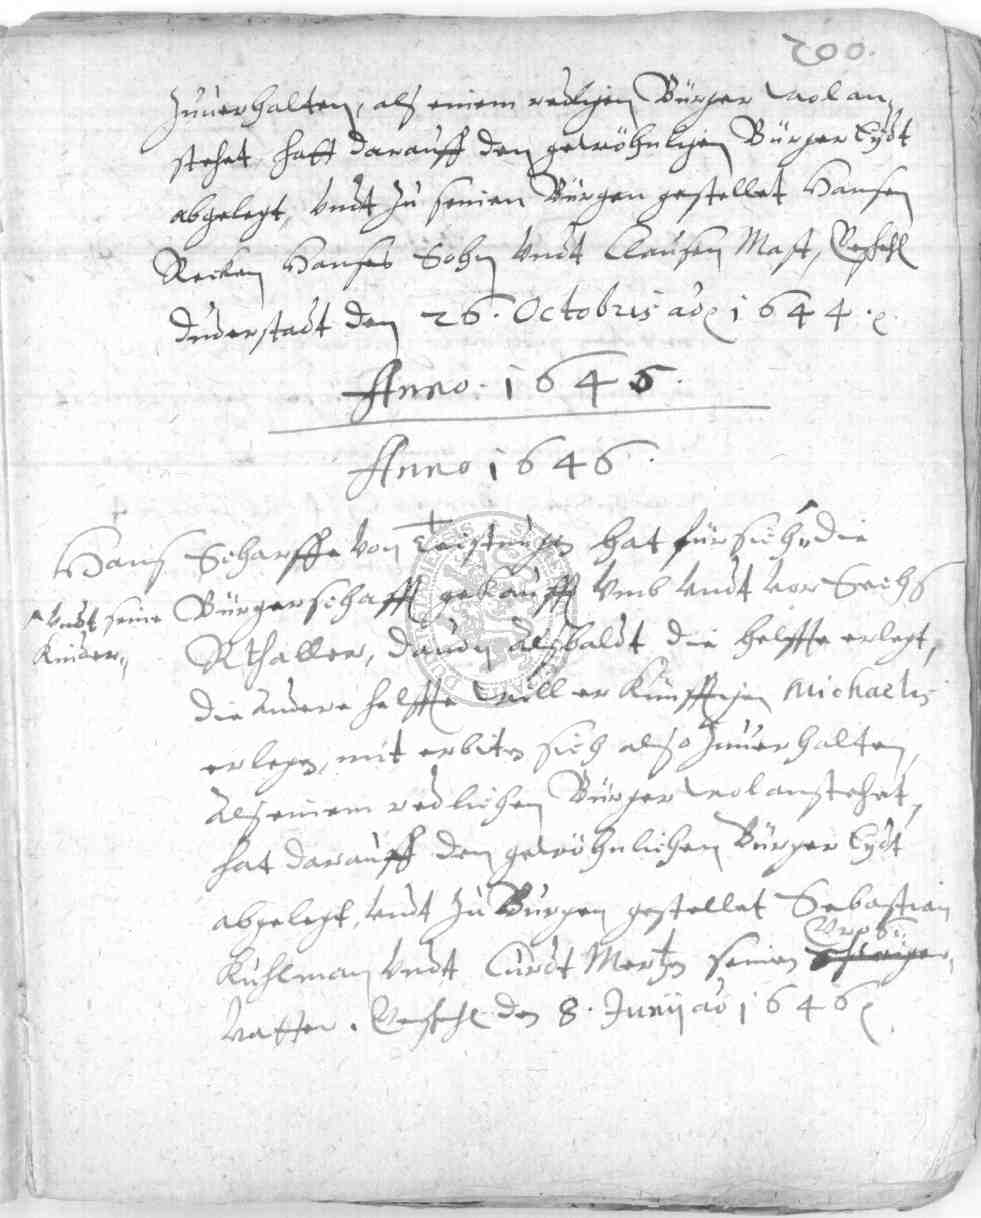 200.
Zuuerhalten, alß einem redlichen Bürger wol an„
stehet, hatt darauff den gewöhnlichen Bürger Eydt
abgelegt, vndt zu seinen Bürgen gestellet Hansen
Recken Hanses Sohn vndt Clausen Mast,
Duderstadt den 26. Octobris ao 1644.
Anno. 1645.
Anno 1646.
Hans Scharffe von Teistungen hat für sich ^ die
^ vndt seine
Kinder„
Bürgerschafft gekaufft vmb vndt vor Sechs
Rthaller, dauon alßbaldt die helffte erlegt,
die andere helffte will er künfftigen Michaelis
erlegen, mit erbiten sich also Zuuerhalten,
alß einem redlichen Bürger wol anstehet,
hat darauff den gewöhnlichen Bürger Eydt
abgelegt, vndt zu Bürgen gestellet Sebastian
Kuhlman vndt Curdt Mertzen seinen
Vatter. den 8. Junij ao 1646